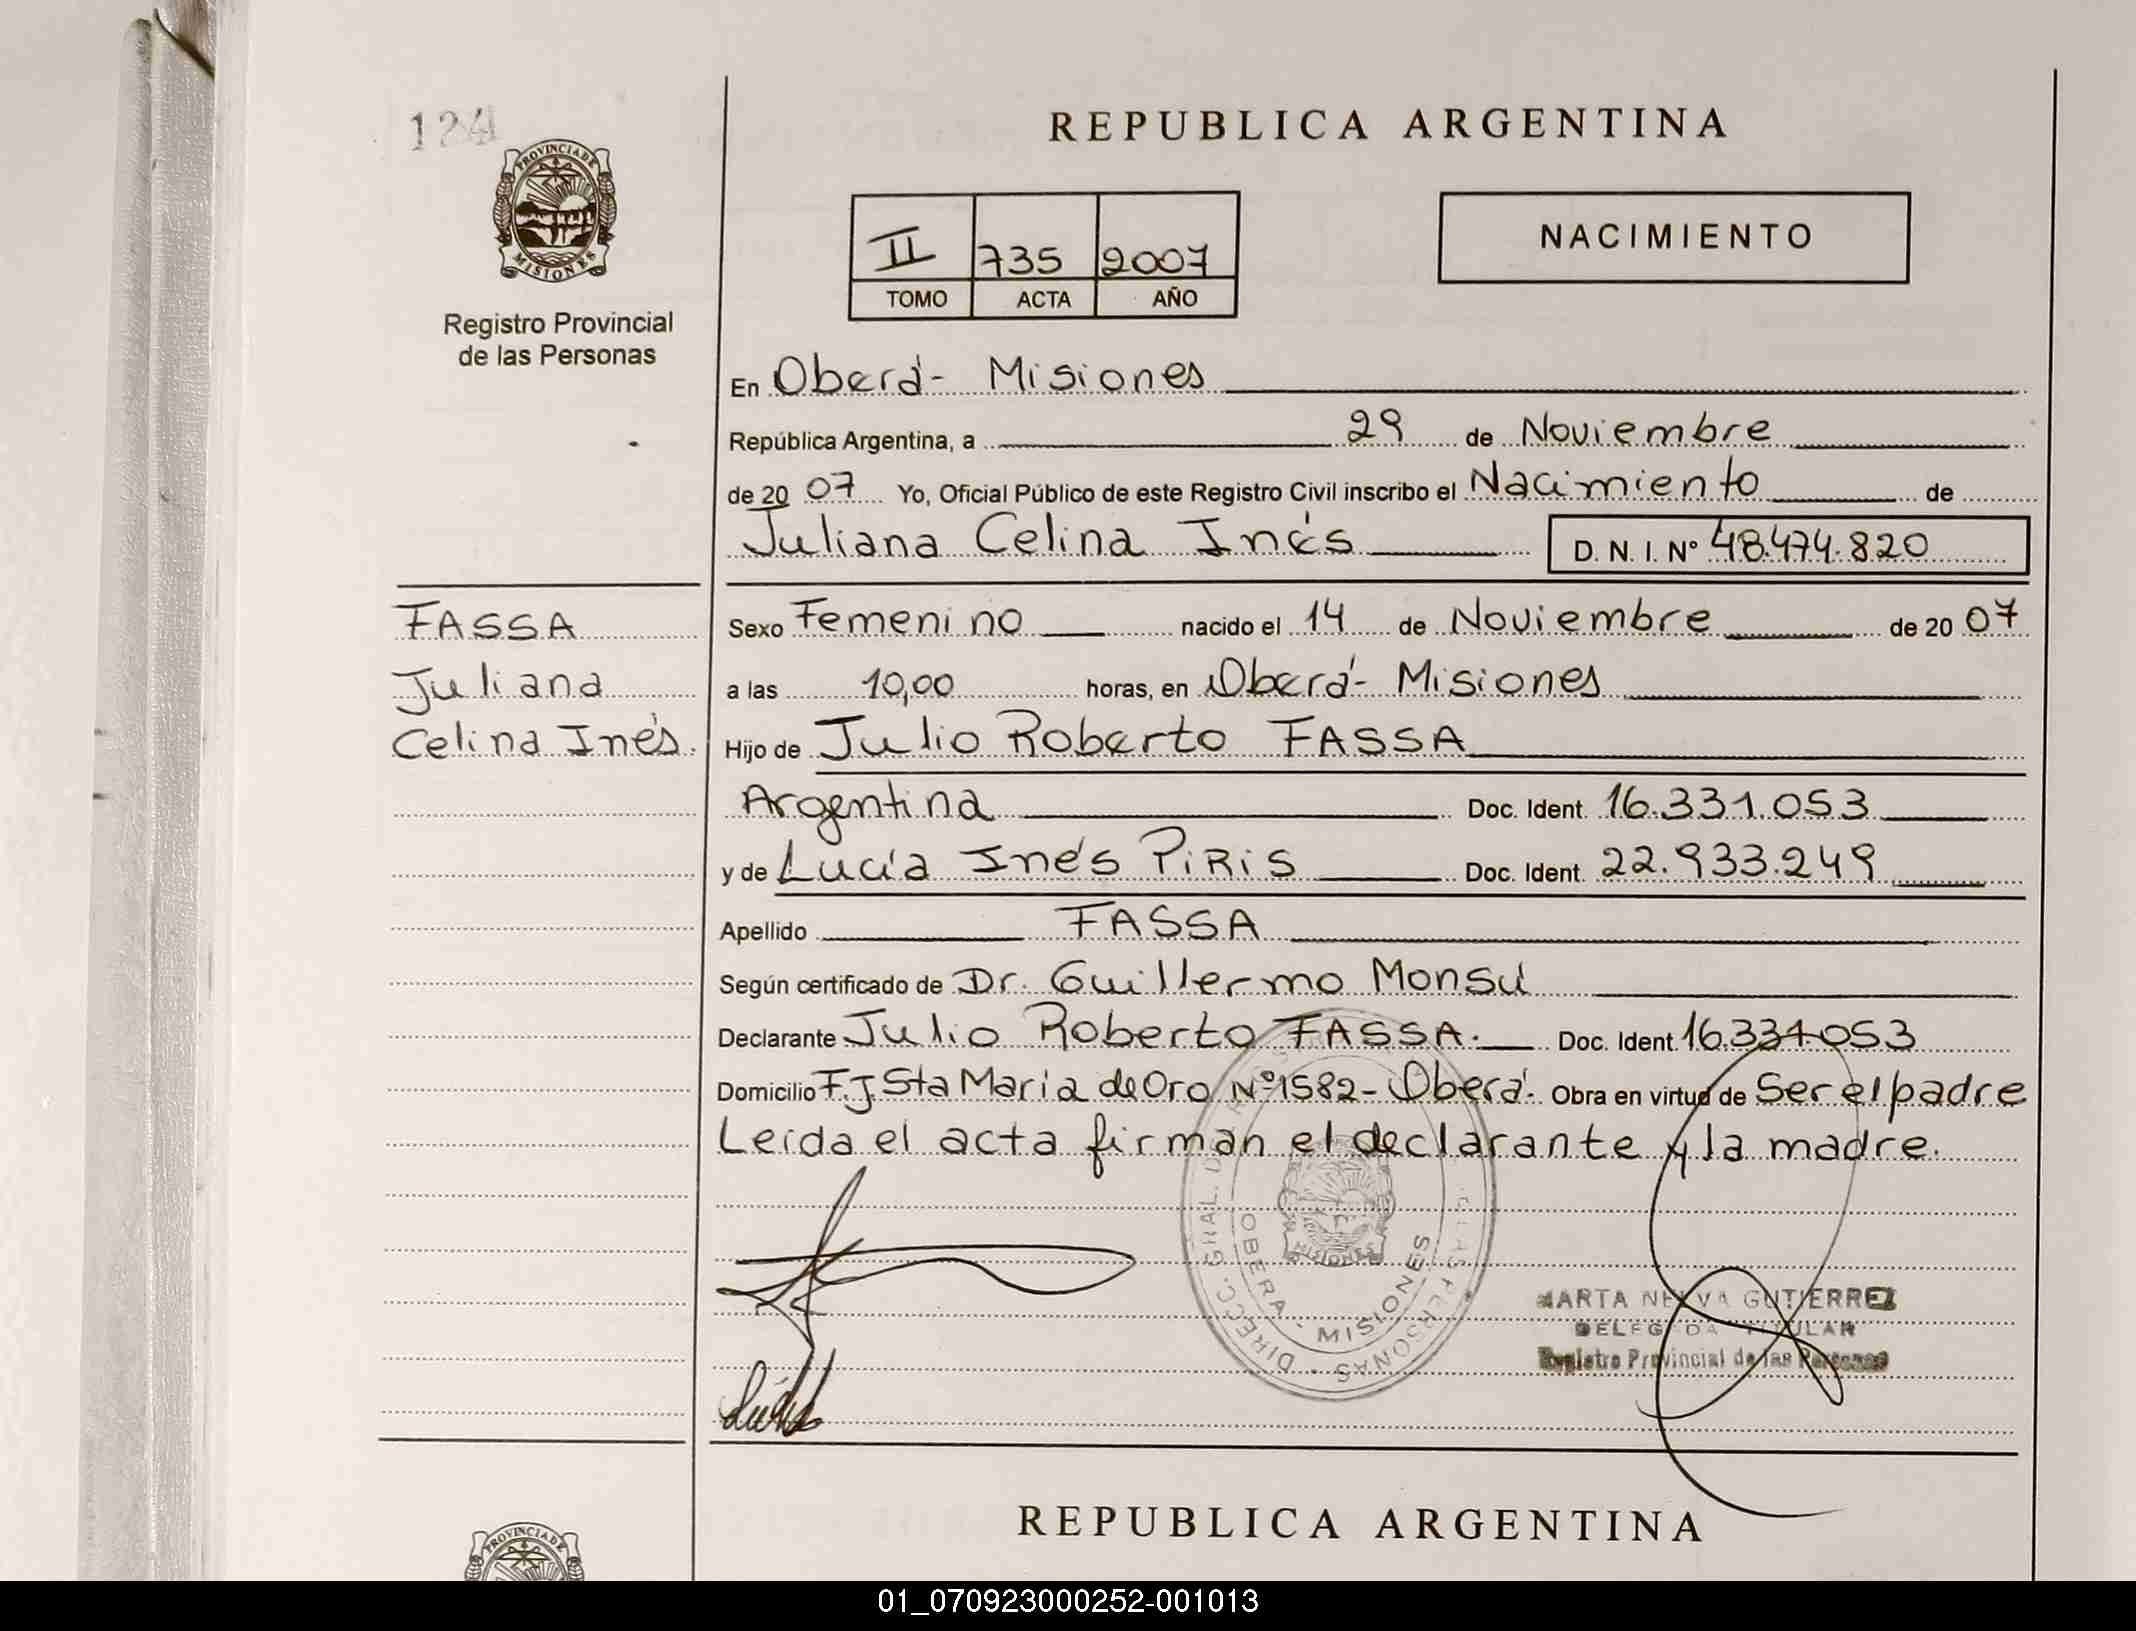 124
PROVINCIA DE
MISIONES
Registro Provincial
de las Personas
REPUBLICA ARGENTINA
II 735 2007
TOMO ACTA AÑO
NACIMIENTO
En Oberá- Misiones
República Argentina, a 29 de Noviembre
de 20 07 Yo, Oficial Público de este Registro Civil inscribo el Nacimiento de
Juliana Celina Inés D. N. I. Nº 48.474.820
FASSA
Juliana
Celina Inés.
Sexo Femenino nacido el 14 de Noviembre de 20 07
a las 10,00 horas, en Oberá- Misiones
Hijo de Julio Roberto FASSA
Argentina Doc. Ident. 16.331.053
y de Lucía Inés PIRIS Doc. Ident. 22.933.249
Apellido FASSA
Según certificado de Dr. Guillermo Monsú
Declarante Julio Roberto FASSA. Doc. Ident. 16.331.053
Domicilio F.J. Sta Maria de Oro Nº1582- Oberá. Obra en virtud de Ser el padre
Leída el acta firman el declarante y la madre.
DIRECC. GRAL. DE LAS PERSONAS
OBERA - MISIONES
MISIONES
MARTA NELVA GUTIERREZ
DELEGADA TITULAR
Registro Provincial de las Personas
REPUBLICA ARGENTINA
PROVINCIA DE
01_070923000252-001013